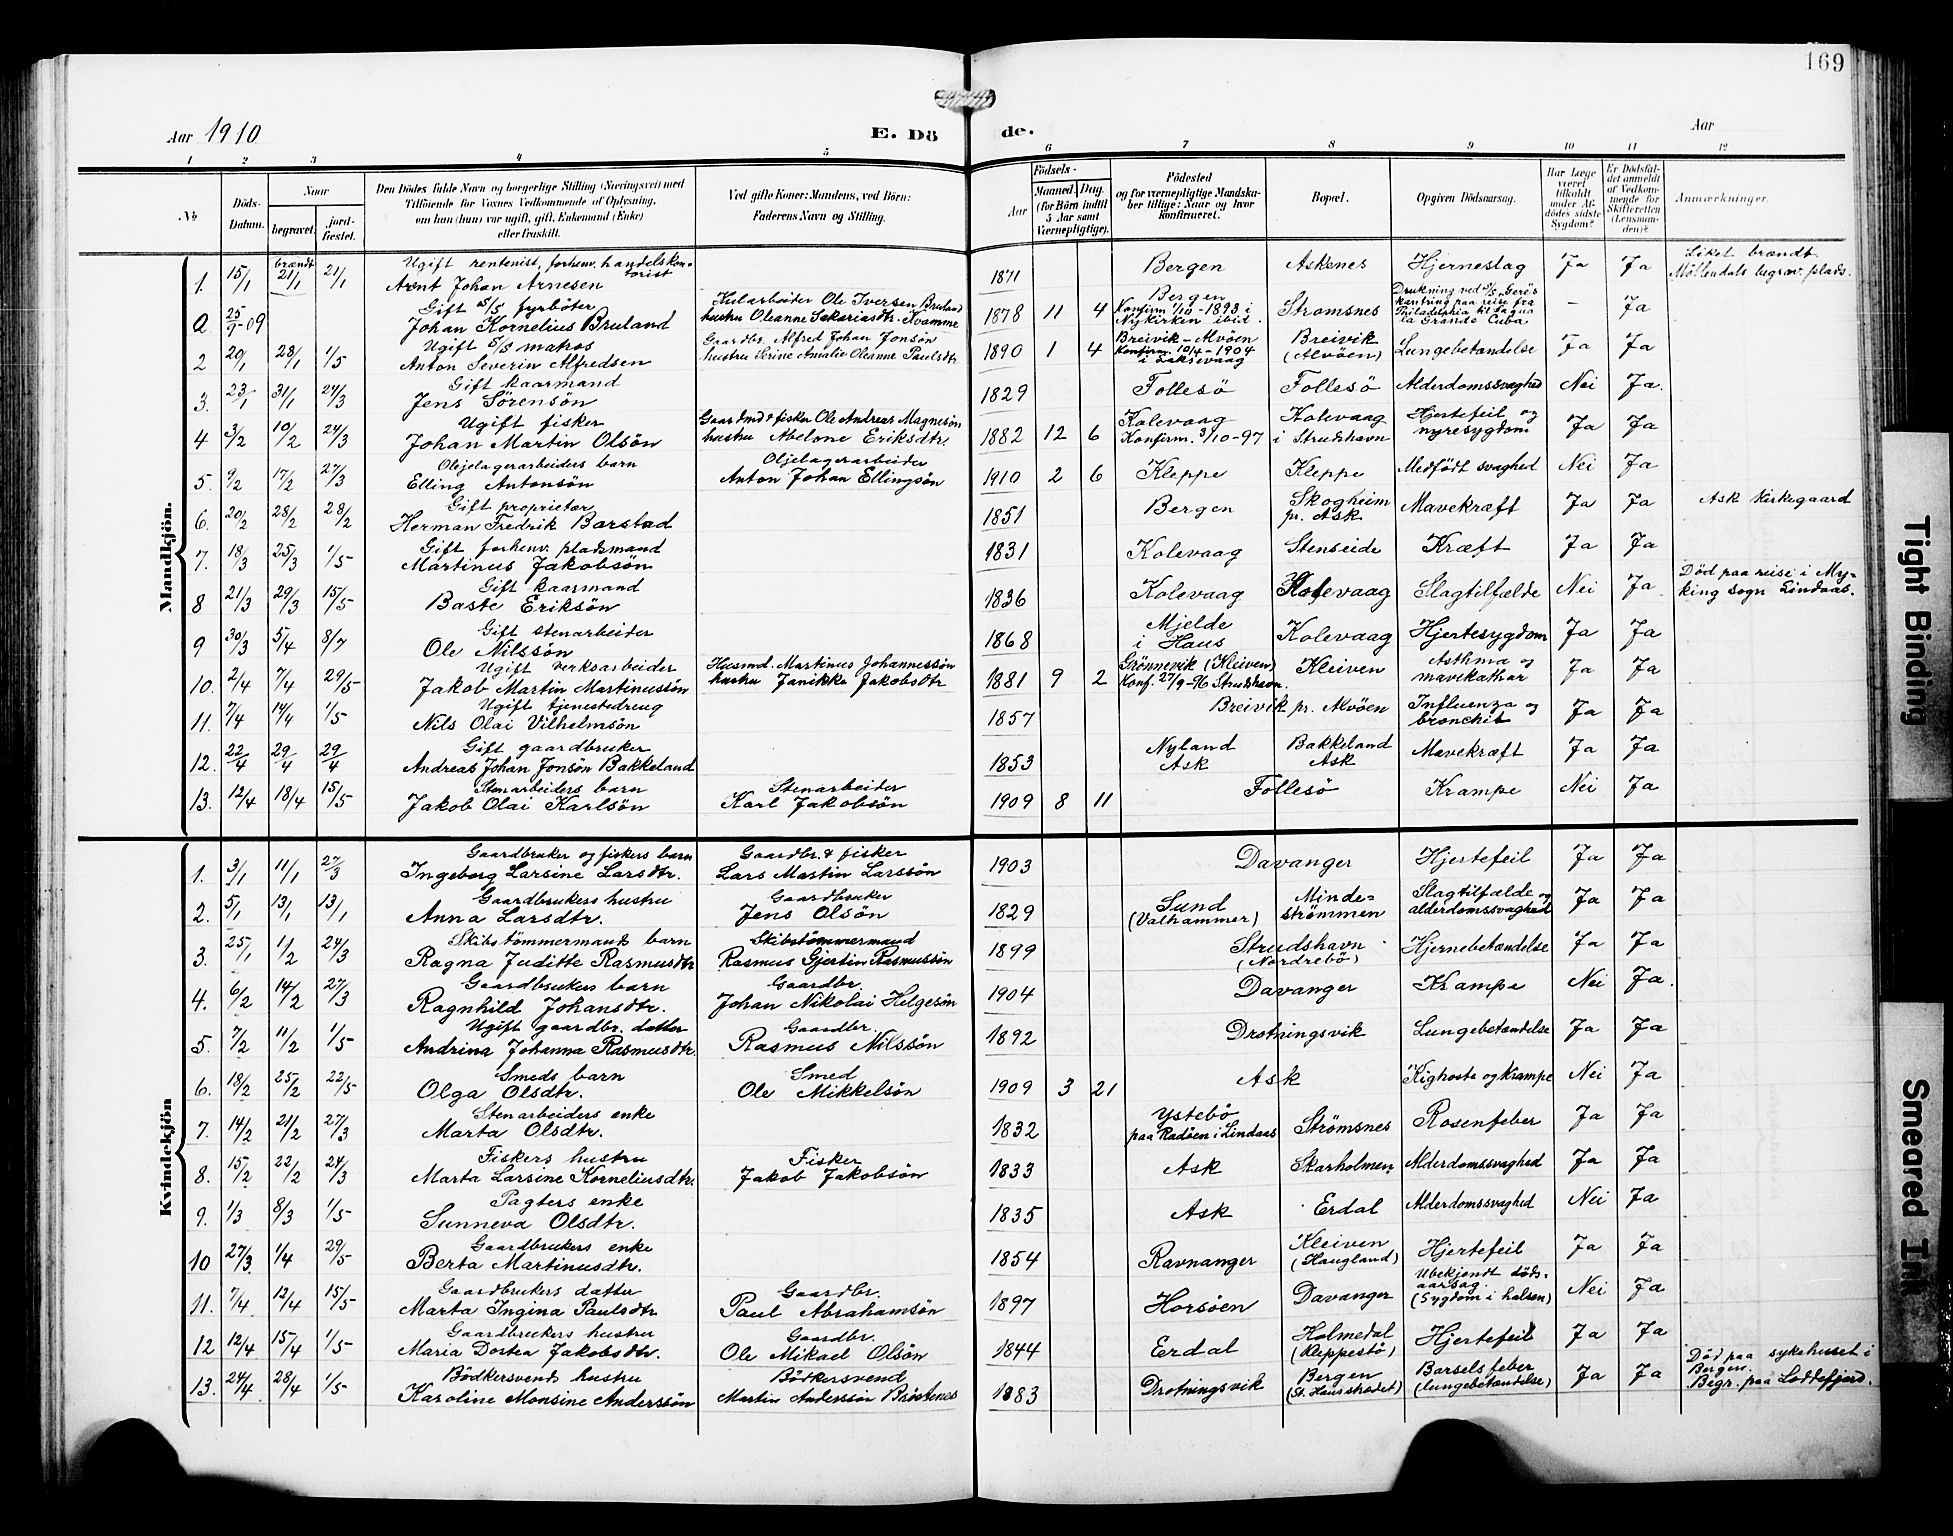 169
Aar 1910
E. Dö
de.
Aar
1 2 3 4 5 6 7 8 9 10 11 12
№
Döds-Datum.
Naar
begravet.
jord-fæstet.
Den Dödes fulde Navn og borgerlige Stilling (Næringsvei) med
Tilföiende for Voxnes Vedkommende af Oplysning,
om hun (hun) var ugift, gift, Enkemand (Enke)
eller fraskilt.
Ved gifte Koner: Mandens, ved Börn:
Faderens Navn og Stilling.
Födsels-
Aar
Maaned. Dag.
(for Börn indtil
5 Aar samt
Værnepligtige).
Födested
og for værnepligtige Mandska-
ber tillige: Naar og hvor
konfirmeret.
Bopæl.
Opgiven Dödsaarsag.
Har Læge
været
tilkaldt
under Af-
dödes sidste
Sygdom?
Er Dödsfal-
det anmeldt
af Vedkom-
mende for
Skifteretten
(Lensman-
den)?
Anmærkninger.
Mandkjön.
Ugift rentenist, forhenv. handelskon-
torist
1. 15/1 brændt 21/1 21/1 Arnt Johan Arnesen 1871 Bergen Askenes Hjerneslag Ja Ja Liket brændt
Möllendals begrav. plads.
Gift S/S fyrböter
a 25/9-09 Johan Kornelius Bruland Kularbeider Ole Iversen Bruland
hustru Oleanne Sakariasdtr. Kvamme 1878 11 4 Bergen
Konfirm 1/10-1893 i
Nykirken ibid. Stromsnes Drukning ved S/S Gerös
kantring paa reise fra
Philadelphia til Sagua
la Grande Cuba – Ja
Ugift S/S matros
2 20/1 28/1 1/5 Anton Severin Alfredsen Gaardbr. Alfred Johan Jonsön
hustru Serine Amalie Oleanne Paulsdtr 1890 1 4 Breivik – Alvöen
Konfirm. 10/4-1904
i Laksevaag Breivik
(Alvöen) Lungebetændelse Ja Ja
Gift kaarmand
3. 23/1 31/1 24/3 Jens Sörensön 1829 Follesö Follesö Alderdomssvaghed Nei Ja.
Ugift fisker
4 3/2 10/2 24/3 Johan Martin Olsön Gaardmd & fisker Ole Andreas Magnesön
hustru Abelone Eriksdtr. 1882 12 6 Kolevaag
Konfirm. 3/10-97 Kolevaag
i Strudshavn Hjertefeil og
nyresygdom Ja Ja
Oljelagerarbeiders barn
5. 9/2 17/2 27/3 Elling Antonsön Oljelagerarbeider
Anton Johan Ellingsön 1910 2 6 Kleppe Kleppe Medfödt svaghed Nei Ja
Gift proprietær
6. 20/2 28/2 28/2 Herman Fredrik Borstad 1851 Bergen Skogheim
pr. Ask Mavekræft Ja Ja Ask Kirkegaard
Gift forhenv. pladsmand
7. 18/3 25/3 1/5 Martinus Jakobsön 1831 Kolevaag Stenseide Kræft Ja Ja
Gift kaarmand
8 21/3 29/3 15/5 Baste Eriksön 1836 Kolevaag Kolevaag Slagtilfælde Nei Ja Död paa reise i My-
king sogn Lindaas.
Gift stenarbeider
9 30/3 5/4 8/7 Ole Nilssön 1868 Mjelde
i Haus Kolevaag Hjertesygdom Ja Ja
Ugift verksarbeider
10. 2/4 7/4 29/5 Jakob Martin Martinussön Husmd. Martinus Johannessön
hustru Janikke Jakobsdtr 1881 9 2 Grönnevik (Kleiven)
Konf. 27/9-96 Strudshavn. Kleiven Asthma og
mavekathar Ja Ja
Ugift tjenestedreng
11. 7/4 14/4 1/5 Nils Olai Vilhelmsön 1857 Breivik pr. Alvöen Influenza og
bronchit Ja Ja
Gift gaardbruker
12. 22/4 29/4 29/4 Andreas Johan Jonsön Bakkeland 1853 Nyland
Ask Bakkeland
Ask Mavekræft Ja Ja
Stenarbeiders barn
13. 12/4 18/4 15/5 Jakob Olai Karlsön Stenarbeider
Karl Jakobsön 1909 8 11 Follesö Krampe Nei Ja
Kvindekjön
Gaardbruker og fiskers barn
1. 3/1 11/1 27/3 Ingeborg Larsine Larsdtr. Gaardbr. & fisker
Lars Martin Larssön 1903 Davanger Hjertefeil Ja Ja
Gaardbrukers hustru
2. 5/1 13/1 13/1 Anna Larsdtr. Gaardbruker
Jens Olsön 1829 Sund
(Valhammer) Minde-
strömmen Slagtilfælde og
alderdomssvaghed Ja Ja
Skibstömmermands barn
3. 25/1 1/2 24/3 Ragna Juditte Rasmusdtr Skibstömmermand
Rasmus Gjertin Rasmussön 1899 Strudshavn
(Nordrebö) Hjernebetændelse Ja Ja
Gaardbrukers barn
4. 6/2 14/2 27/3 Ragnhild Johansdtr. Gaardbr.
Johan Nikolai Helgesön 1904 Davanger Krampe Nei Ja.
Ugift gaardbr. datter
5. 7/2 11/2 1/5 Andrina Johanna Rasmusdtr. Gaardbr.
Rasmus Nilssön 1892 Drotningsvik Lungebetændelse Ja Ja
Smeds barn
6. 18/2 25/2 22/5 Olga Olsdtr. Smed
Ole Mikkelsön 1909 3 21 Ask Kighoste og Krampe Nei Ja
Stenarbeiders enke
7. 14/2 21/2 27/3 Marta Olsdtr. 1832 Ystebö
paa Radöen i Lindaas Strömsnes Rosenfeber Ja Ja
Fiskers hustru
8. 15/2 22/2 24/3 Marta Larsine Korneliusdtr. Fisker
Jakob Jakobsön 1833 Ask Skarholmen Alderdomssvaghed Ja Ja
Pagters enke
9. 1/3 8/3 1/5 Sunneva Olsdtr. 1835 Ask Erdal Alderdomssvaghed Nei Ja
Gaardbrukers enke
10 27/3 1/4 29/5 Berta Martinusdtr. 1854 Ravnanger Kleiven
(Haugland) Hjertefeil Ja Ja
Gaardbrukers datter
11. 7/4 12/4 15/5 Marta Ingina Paulsdtr Gaardbr.
Paul Abrahamsön 1897 Horsöen Davanger Ubekjendt döds-
aarsag.
(Sygdom i halsen) Nei Ja
Gaardbrukers hustru
12 12/4 15/4 1/5 Maria Dortea Jakobsdtr. Gaardbr.
Ole Mikael Olsön 1844 Erdal Holmedal
(Kleppestö) Hjertefeil Ja Ja
Bödkersvend hustru
13. 24/4 28/4 1/5 Karoline Monsine Anderssön Bödkersvend
Martin Anderssön 1883 Drotningsvik Bergen
(St. Hansstrædet) Barselsfeber
(lungebetændelse) Ja Ja Död paa sykehuset i
Bergen.
Begr. paa Loddefjord.
Tight Binding
Smeared Ink